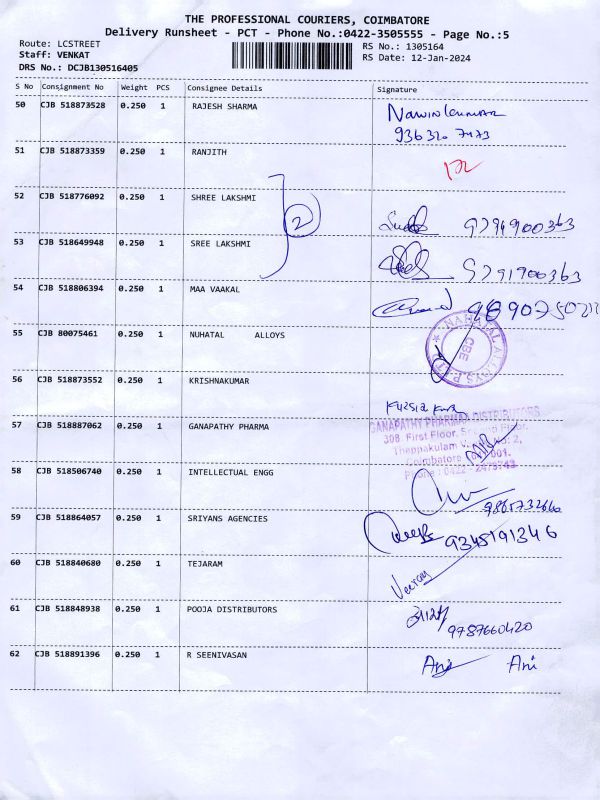 THE PROFESSIONAL COURIERS, COIMBATORE
Delivery Runsheet - PCT - Phone No.:0422-3505555 - Page No.:5
Route: LCSTREET
RS No.: 1305164
Staff: VENKAT
RS Date: 12-Jan-2024
DRS No.: DCJB130516405
S No Consignment No Weight PCS Consignee Details Signature
50 CJB 518873528 0.250 1 RAJESH SHARMA
51 CJB 518873359 0.250 1 RANJITH
52 CJB 518776092 0.250 1 SHREE LAKSHMI
2
53 CJB 518649948 0.250 1 SREE LAKSHMI 9791900363
54 CJB 518806394 0.250 1 MAA VAAKAL
55 CJB 80075461 0.250 1 NUHATAL ALLOYS
CBE
56 CJB 518873552 0.250 1 KRISHNAKUMAR
57 CJB 518887062 0.250 1 GANAPATHY PHARMA
GANAPATHY PHARMA DISTRIBUTORS
308, First Floor, Second Floor,
Theppakulam
Coimbatore
Phone : 0422
58 CJB 518506740 0.250 1 INTELLECTUAL ENGG
59 CJB 518864057 0.250 1 SRIYANS AGENCIES 9345191346
60 CJB 518840680 0.250 1 TEJARAM
61 CJB 518848938 0.250 1 POOJA DISTRIBUTORS
9787660420
62 CJB 518891396 0.250 1 R SEENIVASAN Ani